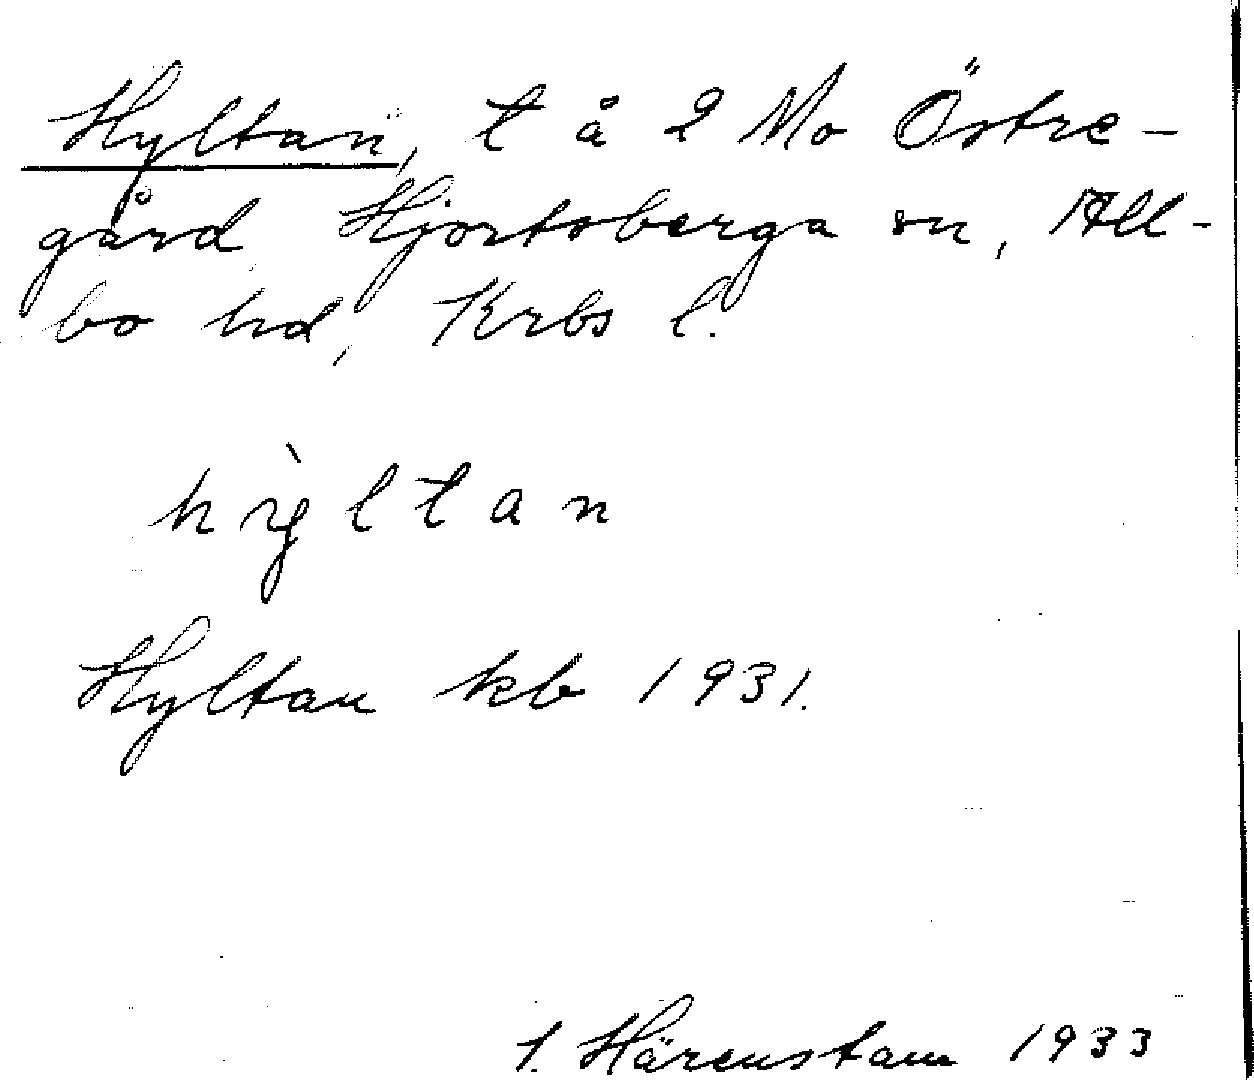 Hyltan, t å 2 Mo Östre-
gård, Hjortsberga sn, All-
bo hd, Krbs l.
hỳltan
Hyltan kb 1931.
I. Härenstam 1933